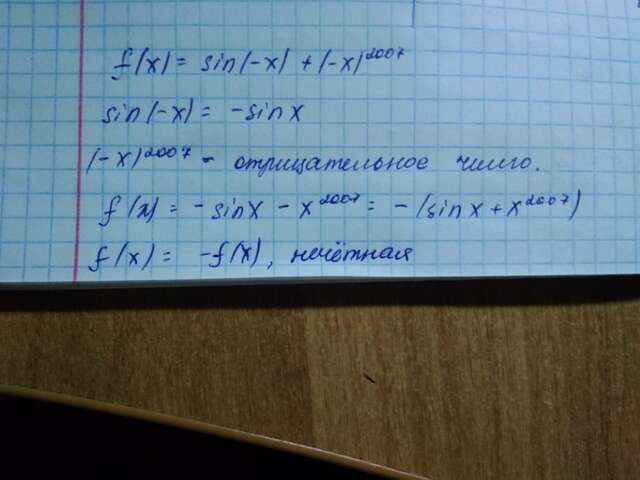 f(x) = sin(-x) + (-x)²⁰⁰⁷
sin(-x) = -sin x
(-x)²⁰⁰⁷ - отрицательное число.
f(x) = -sin x - x²⁰⁰⁷ = -(sin x + x²⁰⁰⁷)
f(x) = -f(x), нечётная